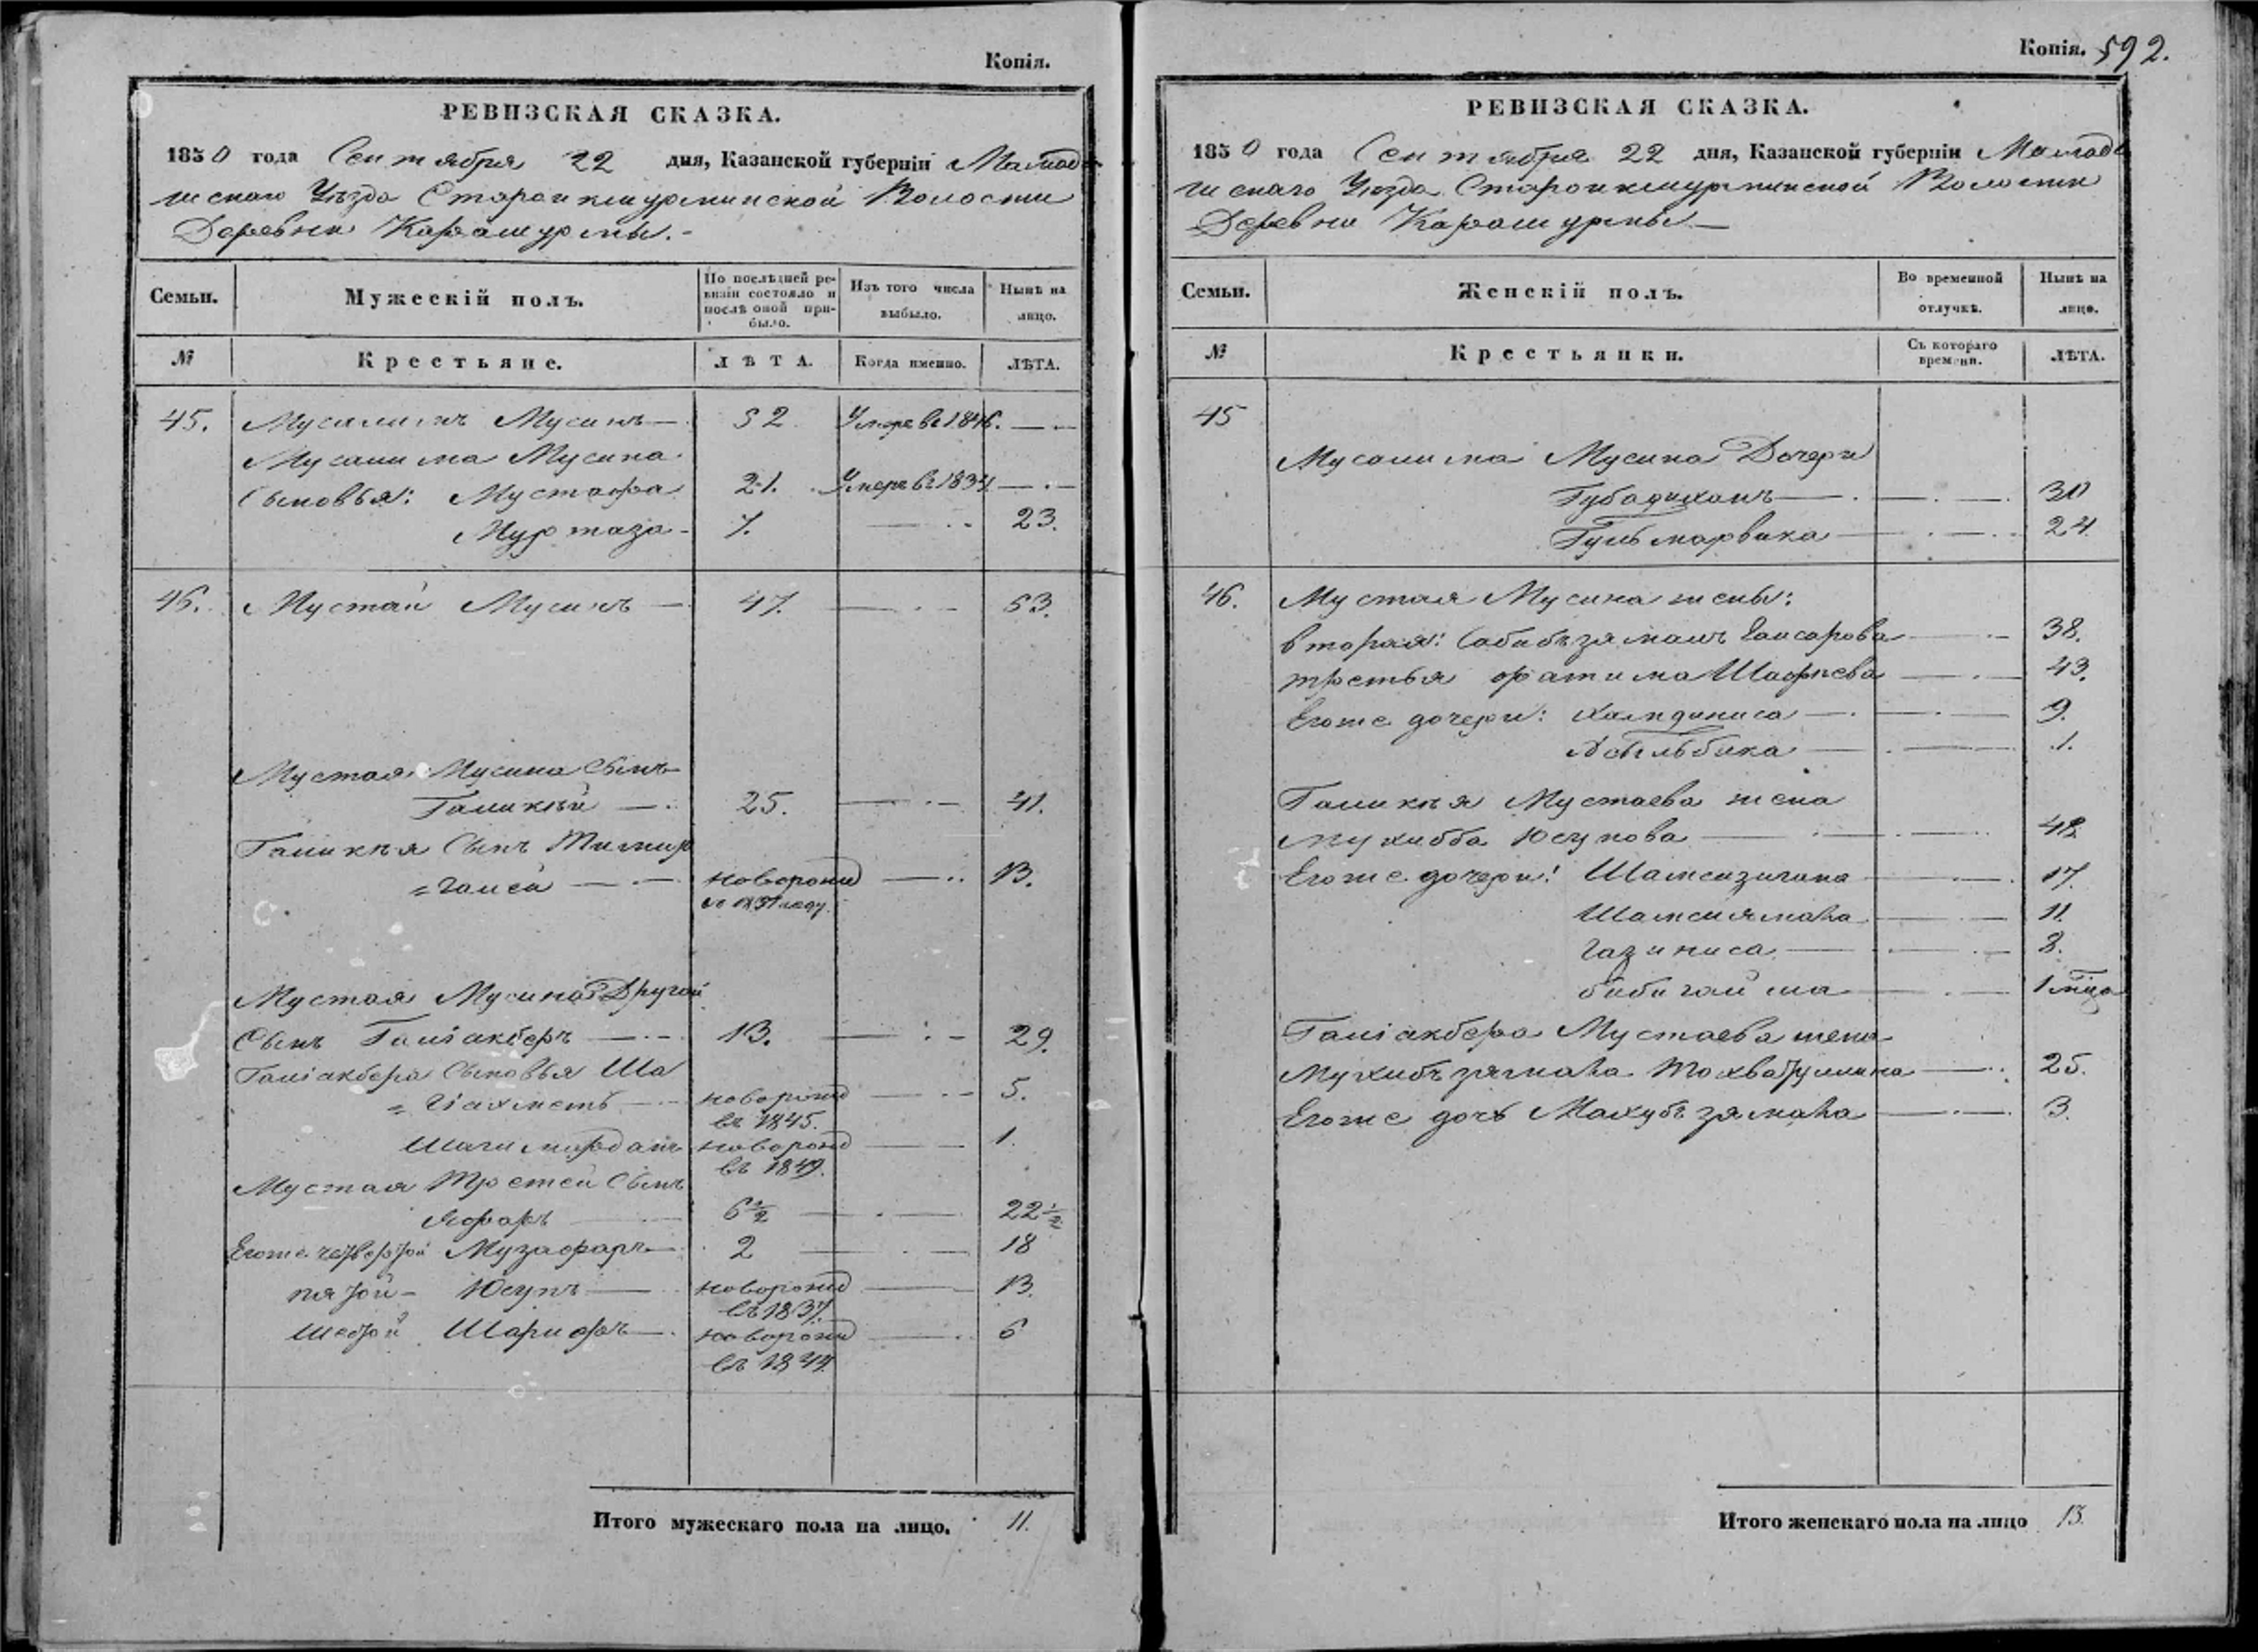 Копія.
РЕВИЗСКАЯ СКАЗКА.
1850 года Сентября 22 дня, Казанской губерніи Мамад
ышскаго Уѣзда Староикшурминской Волости
Деревни Карашурмы.-
Семьи. Мужескій полъ. По послѣдней ре-
визіи состояло и
послѣ оной при-
было. Изъ того числа
выбыло. Нынѣ на
лицо.
№ Крестьяне. ЛѢТА. Когда именно. ЛѢТА.
45. Мусалимъ Мусинъ 52 Умеръ въ 1846.
Мусалима Мусина
Сыновья: Мустафа 21. Умеръ въ 1834
Муртаза 7. 23.
46. Мустай Мусинъ 47. 63.
Мустая Мусина Сынъ
Галикѣй 25. 41.
Галикѣя Сынъ Тимир
=галей новорожд 13.
въ 1837 году.
Мустая Мусина Другой
Сынъ Галіакберъ 13. 29.
Галіакбера Сыновья Ша
=гіахметъ новорожд 5.
въ 1845.
Шагимарданъ новорожд 1.
въ 1849.
Мустая Третей Сынъ
Яфаръ 6½ 22½
Егоже четвертой Музафаръ 2 18
пятой - Юсупъ новорожд 13.
въ 1837.
шестой Шарифъ новорожд 6
въ 1844.
Итого мужескаго пола на лицо. 11.
Копія. 592.
РЕВИЗСКАЯ СКАЗКА.
1850 года Сентября 22 дня, Казанской губерніи Мамад
ышскаго Уѣзда Староикшурминской Волости
Деревни Карашурмы
Семьи. Женскій полъ. Во временной
отлучкѣ. Нынѣ на
лицо.
№ Крестьянки. Съ котораго
времени. ЛѢТА.
45
Мусалима Мусина Дочери
30
Гульмарвика 24.
46. Мустая Мусина жены:
вторая: Сабибъзямалъ 38.
третья фатима Шафѣева 43.
Егоже дочери: 9.
Асылбика 1.
Галикѣя Мустаева жена
Мухибба Юсупова 48.
Егоже дочери: 17.
Шамсиямала 11.
Газиниса 8.
бибигайша 1 мѣсца
Галіакбера Мустаева жена
Мухибъзямала Тохватуллина 25.
Егоже дочь Махубъзямала 3.
Итого женскаго пола на лицо 13.